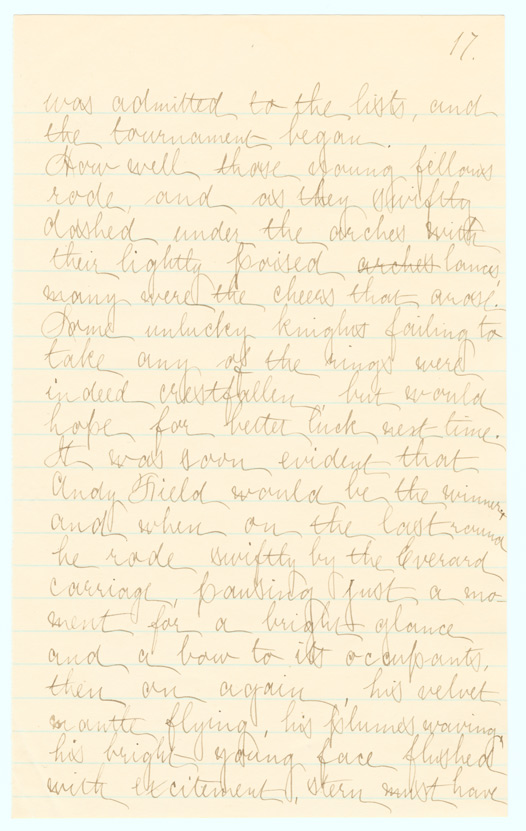 17.
was admitted to the lists, and
the tournament began.
How well those young fellows
rode, and as they swiftly
dashed under the arches with
their lightly poised arches lances,
many were the cheers that arose.
Some unlucky knights failing to
take any of the rings were
indeed crestfallen, but would
hope for better luck next time.
It was soon evident that
Andy Field would be the winner,
and when on the last round
he rode swiftly by the Everard
carriage, pausing just a mo-
ment for a bright glance
and a bow to its occupants,
then on again, his velvet
mantle flying, his plumes waving,
his bright young face flushed
with excitement, stern must have